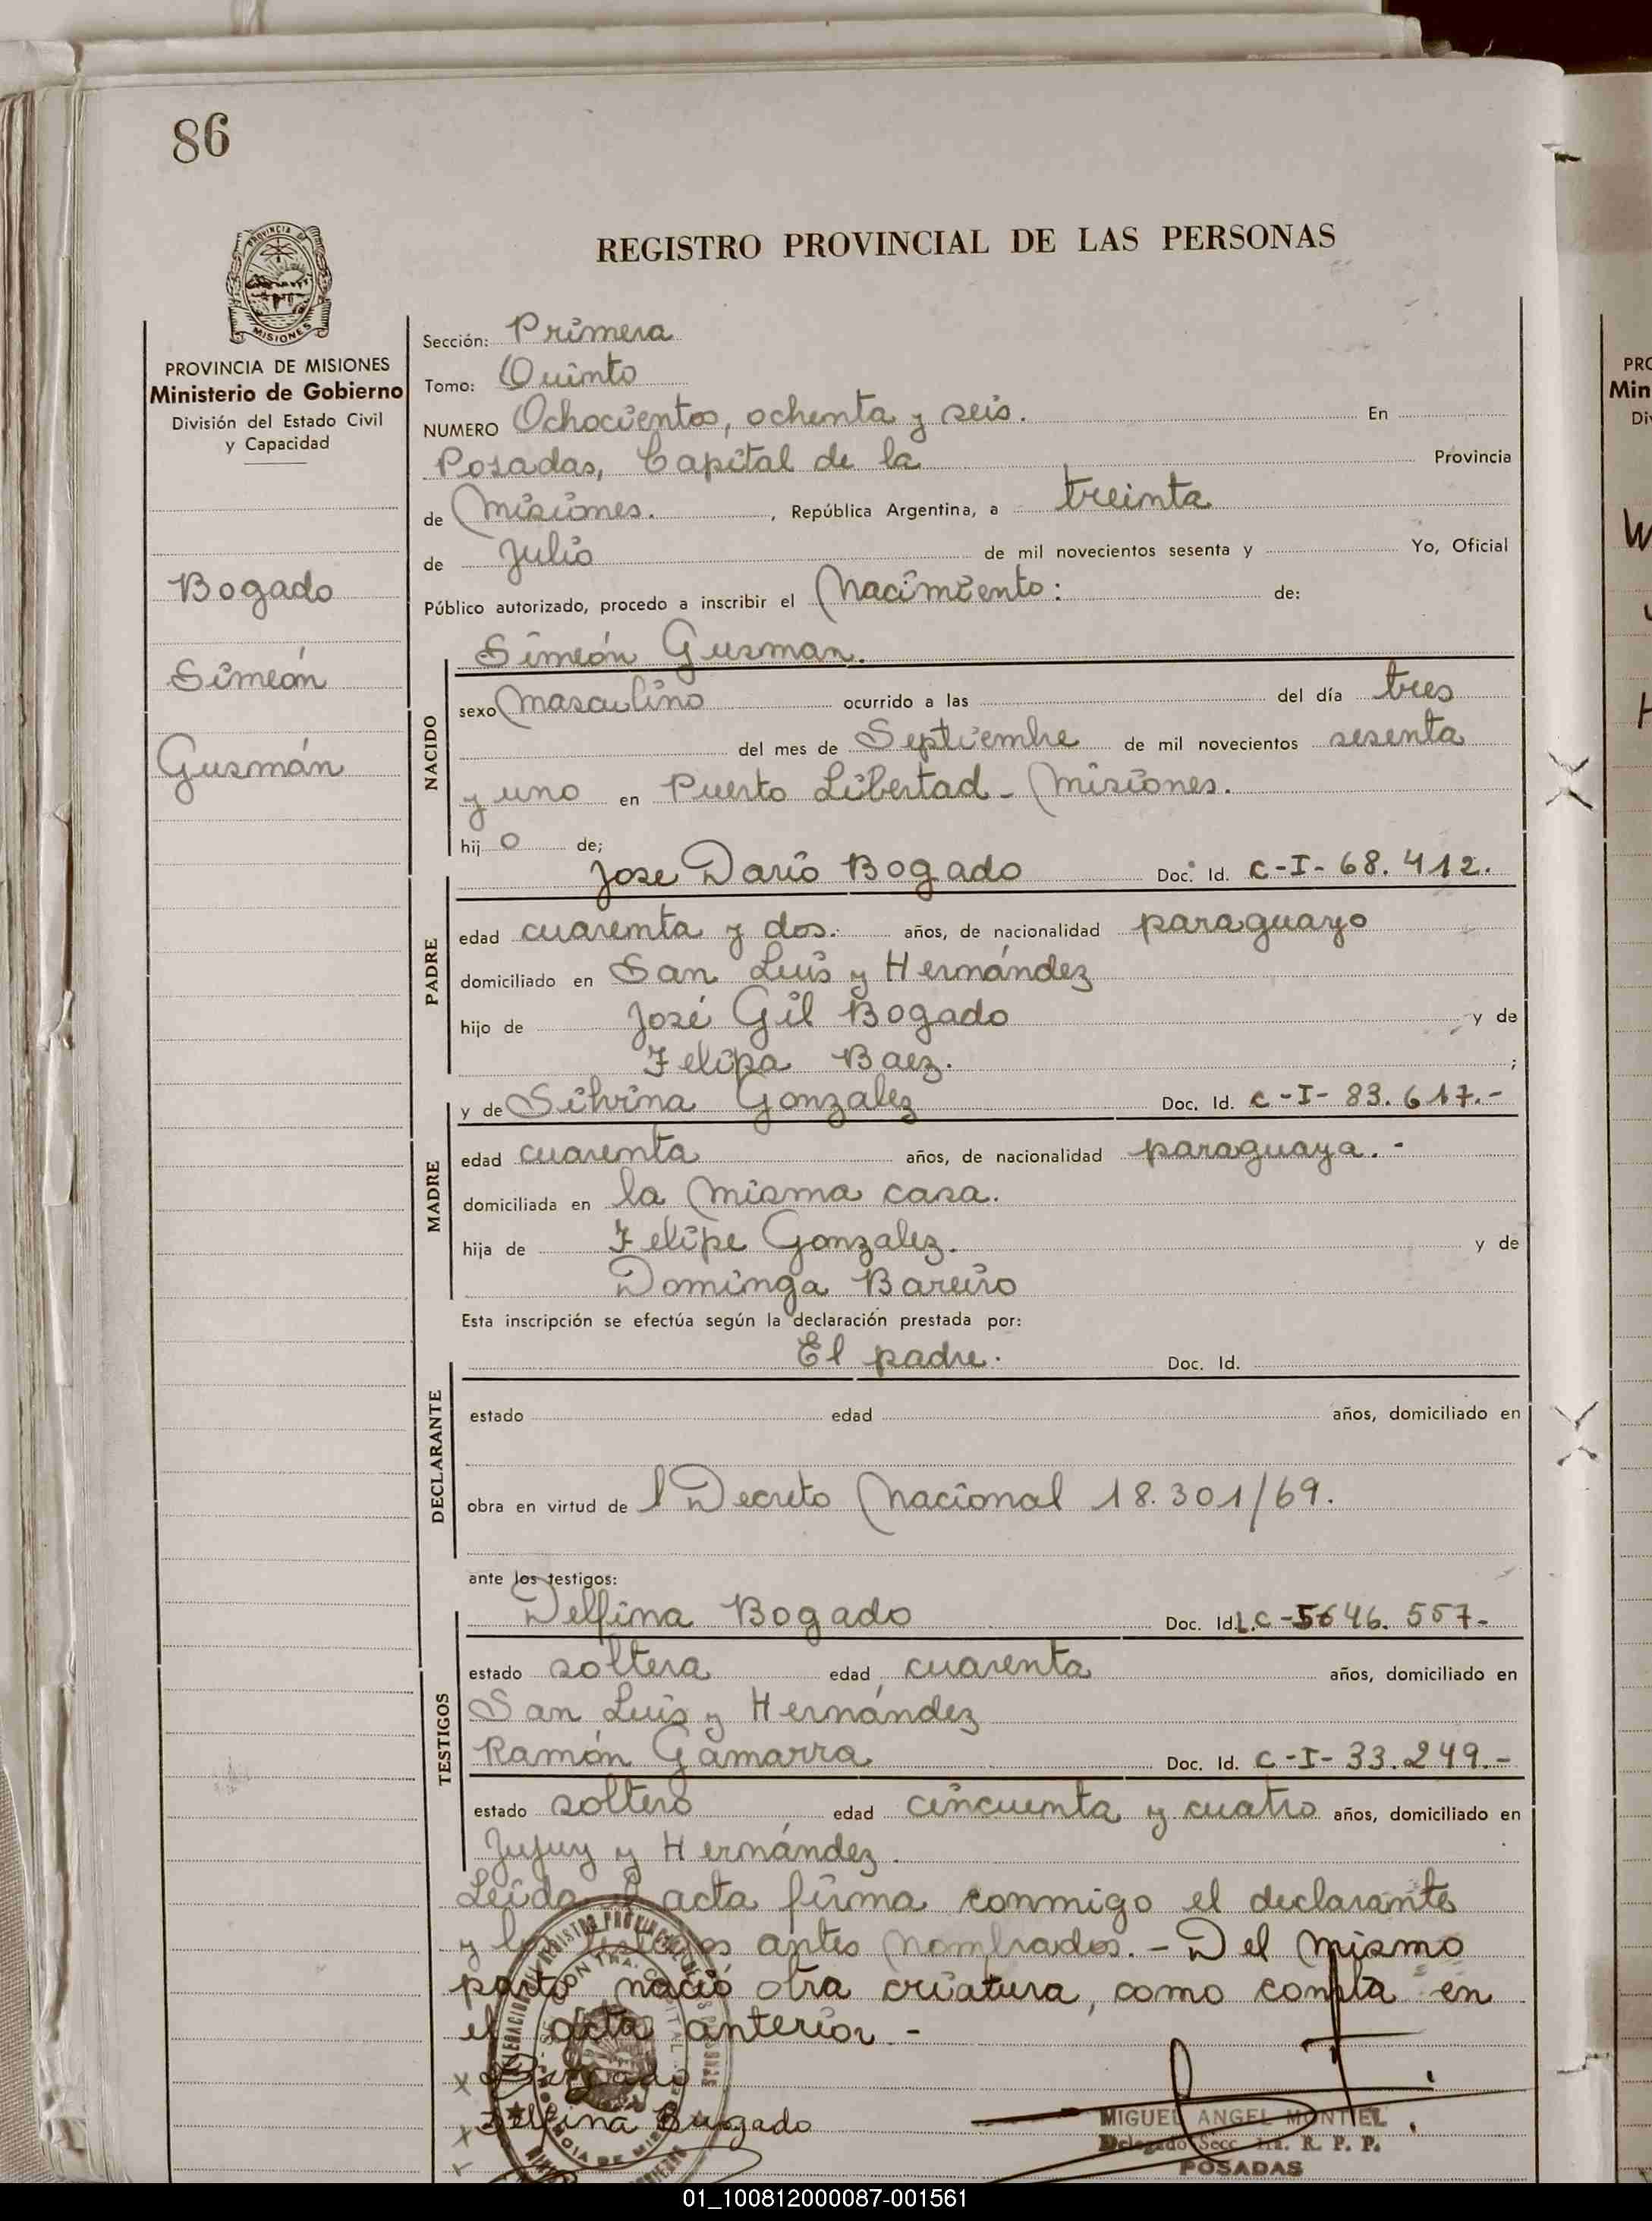 86
PROVINCIA DE MISIONES
REGISTRO PROVINCIAL DE LAS PERSONAS
PROVINCIA DE MISIONES
Ministerio de Gobierno
División del Estado Civil
y Capacidad
Bogado
Simeón
Gusmán
Sección: Primera
Tomo: Quinto
NUMERO Ochocientos, ochenta y seis. En
Posadas, Capital de la Provincia
de Misiones. , República Argentina, a treinta
de Julio de mil novecientos sesenta y Yo, Oficial
Público autorizado, procedo a inscribir el Nacimiento: de:
Simeón Gusman.
NACIDO
sexo Masculino ocurrido a las del día tres
del mes de Septiembre de mil novecientos sesenta
y uno en Puerto Libertad - Misiones.
hij o de;
Jose Dario Bogado Doc. Id. C-I- 68.412.
PADRE
edad cuarenta y dos. años, de nacionalidad paraguayo
domiciliado en San Luis y Hernández
hijo de José Gil Bogado y de
Felipa Baez. ;
y de Silvina Gonzalez Doc. Id. C-I- 83.617.-
MADRE
edad cuarenta años, de nacionalidad paraguaya.-
domiciliada en la misma casa.
hija de Felipe Gonzalez. y de
Dominga Bareiro
Esta inscripción se efectúa según la declaración prestada por:
El padre. Doc. Id.
DECLARANTE
estado edad años, domiciliado en
obra en virtud de l Decreto Nacional 18.301/69.
ante los testigos:
Delfina Bogado Doc. Id. L.C-5646.557-
TESTIGOS
estado soltera edad cuarenta años, domiciliado en
San Luis y Hernández
Ramón Gamarra Doc. Id. C-I-33.249.-
estado soltero edad cincuenta y cuatro años, domiciliado en
Jujuy y Hernández.
Leída el acta firma conmigo el declarante
y los testigos antes nombrados.- Del mismo
parto nació otra criatura, como consta en
el acta anterior -
x Bogado
x Delfina Bugado
x
MIGUEL ANGEL MONTIEL
Delegado Secc. 1ra. R. P. P.
POSADAS
01_100812000087-001561